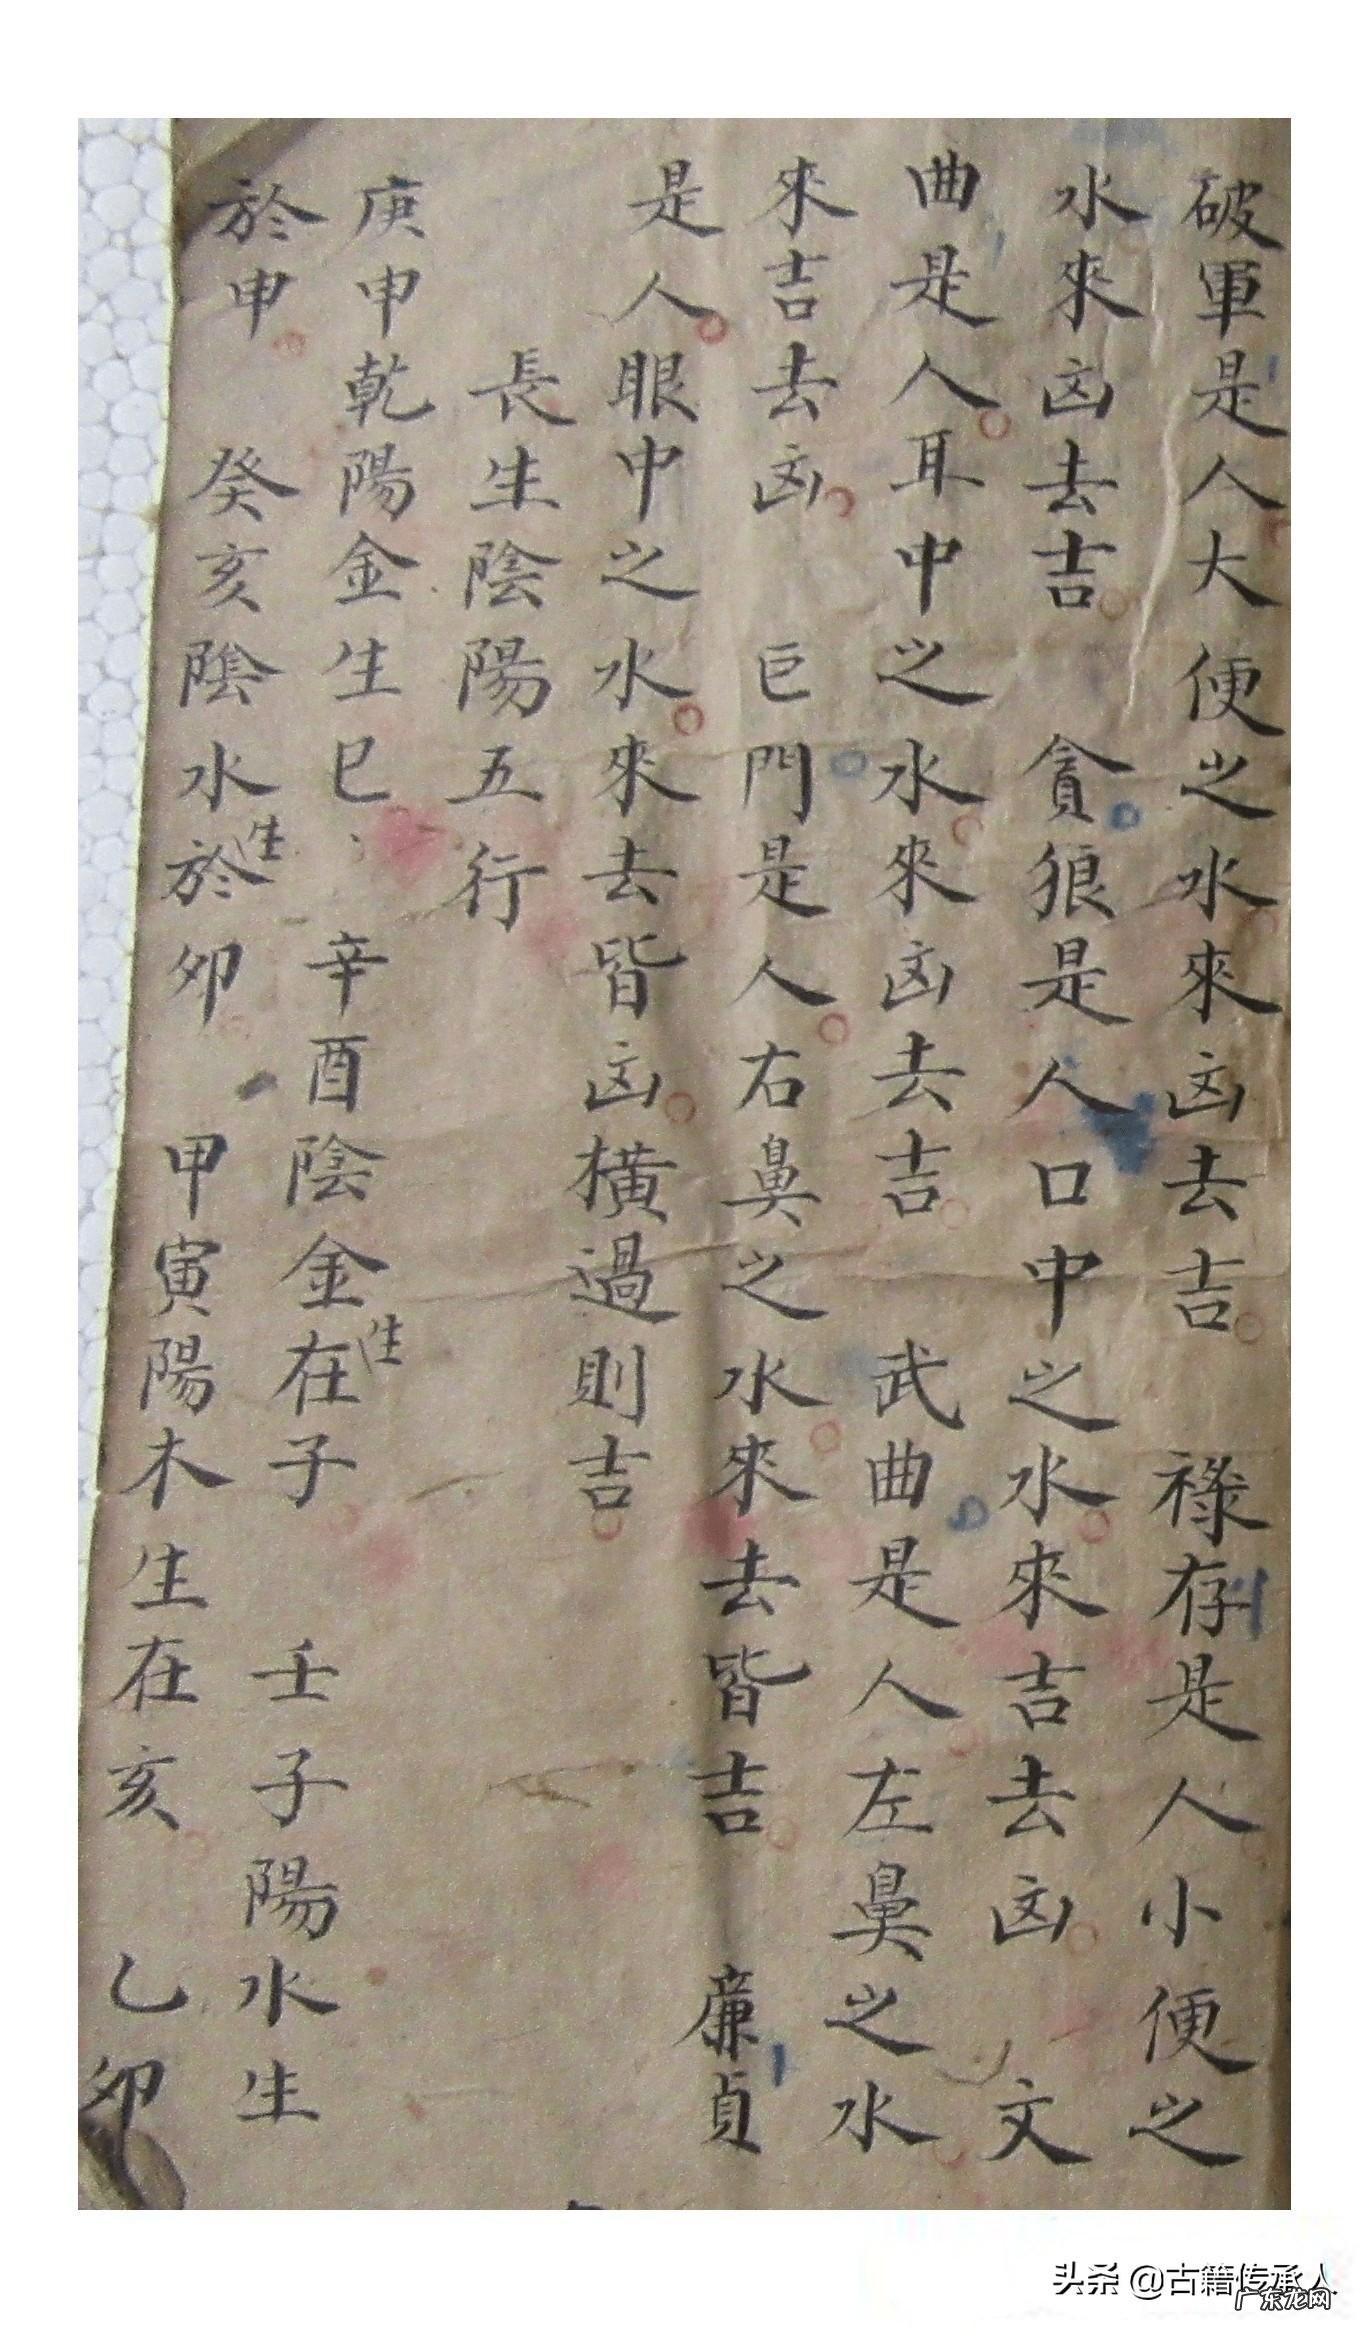 破軍是人大便之水來凶去吉　祿存是人小便之
水來凶去吉　貪狼是人口中之水來吉去凶　文
曲是人耳中之水來凶去吉　武曲是人左鼻之水
來吉去凶　巨門是人右鼻之水來去皆吉　廉貞
是人眼中之水來去皆凶橫過則吉
長生陰陽五行
庚申乾陽金生巳　辛酉陰金生在子　壬子陽水生
於申　癸亥陰水生於卯　甲寅陽木生在亥　乙卯
头条 @古籍传承人
广东龙网